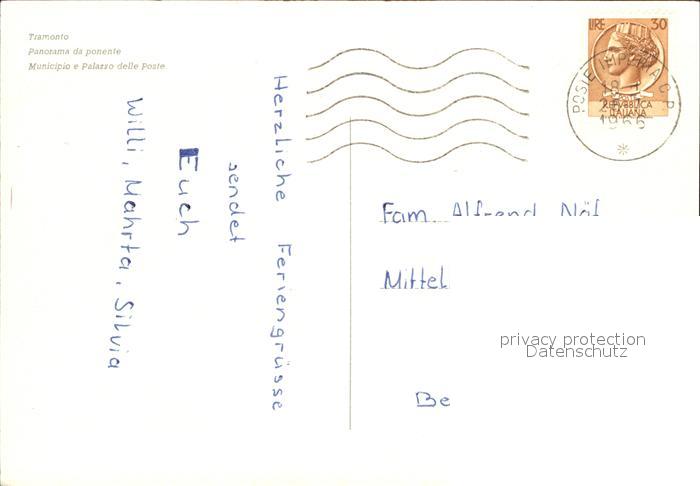 Tramonto
Panorama da ponente
Municipio e Palazzo delle Poste
LIRE 30
POSTE ITALIANE
REPVBBLICA
ITALIANA
POSTE IMPERIA C.P.
1966
Herzliche Feriengrüsse
sendet
Euch
Willi, Mahrta, Silvia
Fam. Alfrend Näf
Mittel
Be
privacy protection
Datenschutz